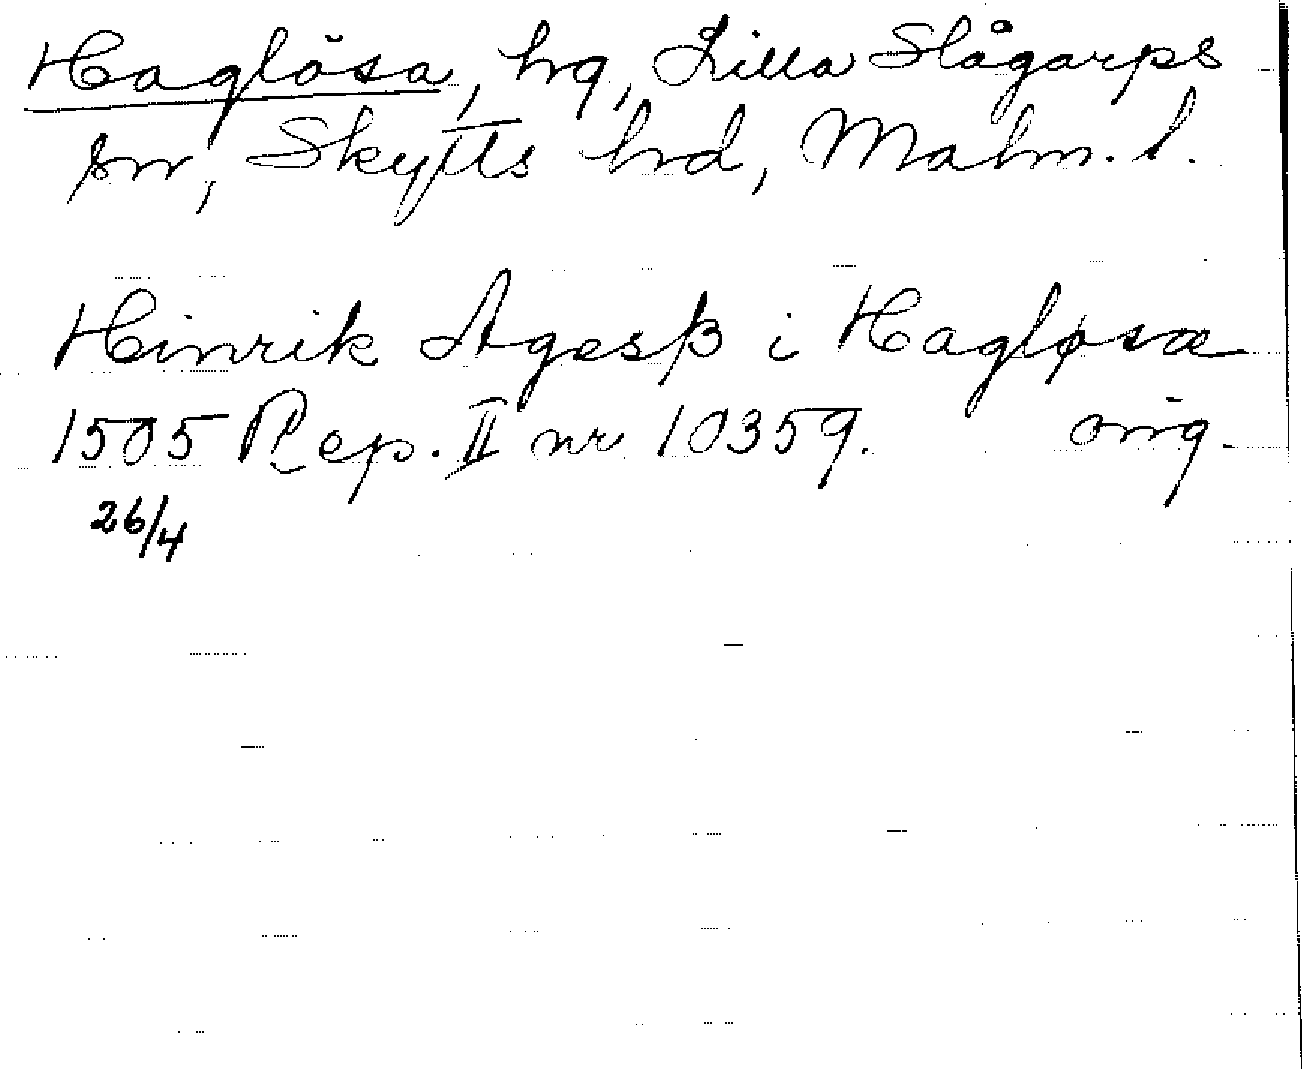 Haglösa, hg, Lilla Slågarps
sn, Skytts hd, Malm. l.
Hinrik Agesß i Hagløsæ
1505 Rep. II nr 10359. orig.
26/4